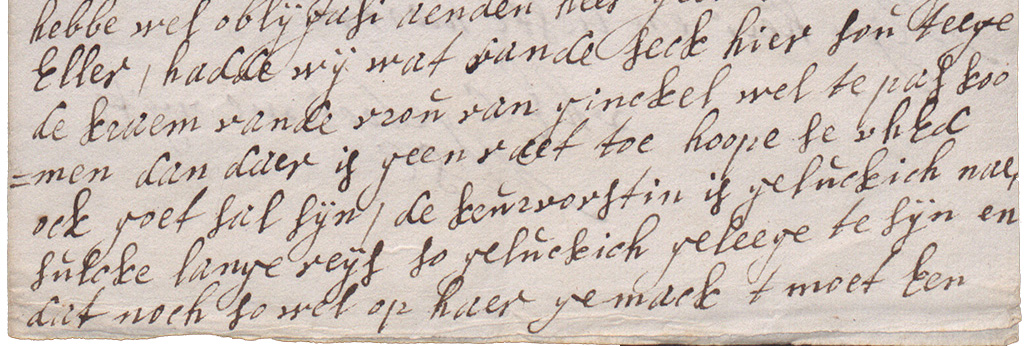 hebbe wel oblÿgasi aenden heer
Eller, hadde wÿ wat vande seck hier sou teege
de kraem vande vrou van ginckel wel te pas koo
=men dan daer is geen raet toe hoope se
ock goet sal sÿn, de keurvorstin is geluckich nae,
sulcke lange reÿs so geluckich geleege te sÿn en
dat noch so wel op haer gemack t moet ken